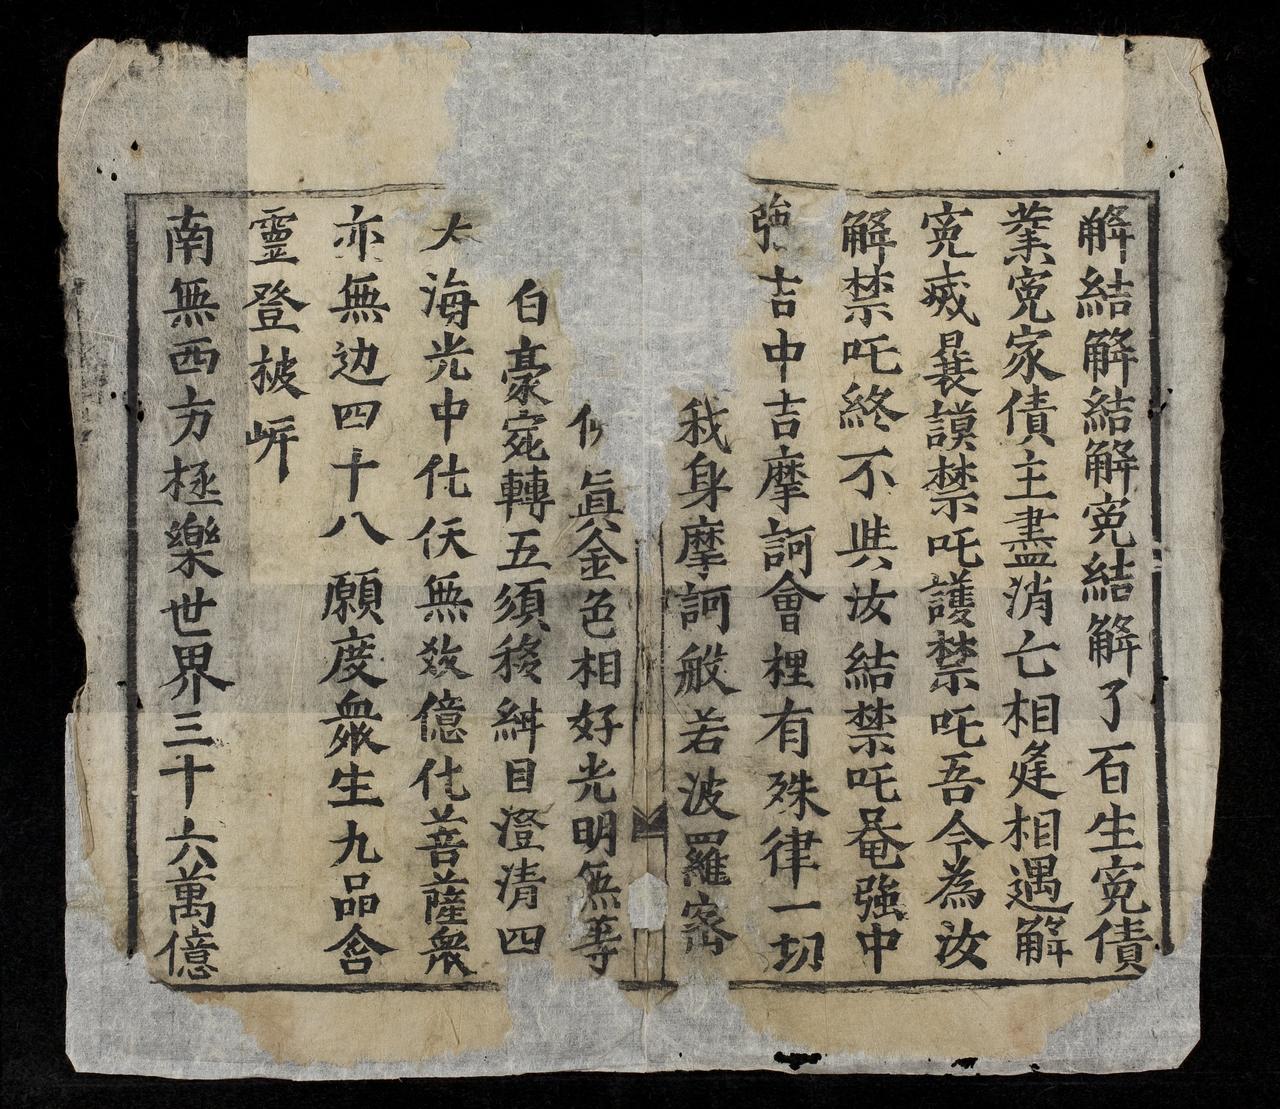 解結解結解寃結解了百生寃債
業寃家債主盡消亡相逢相遇解
寃 謨禁吒護禁吒吾今為汝
解禁吒終不與汝結禁吒唵強中
強吉中吉摩訶會裡有殊律一切
我身摩訶般若波羅密
真金色相好光明無等
白豪宛轉五須移紺目澄清四
大海光中化仸無数億化菩薩衆
亦無边四十八願度衆生九品含
靈登彼岸
南無西方極樂世界三十六萬億